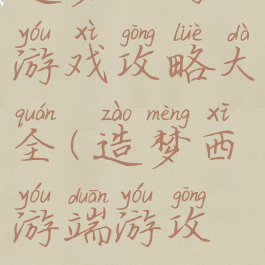 yóu xì gōng lüè dà
游戏攻略大
quán zào mèng xī
全(造梦西
yóu duān yóu gōng
游端游攻